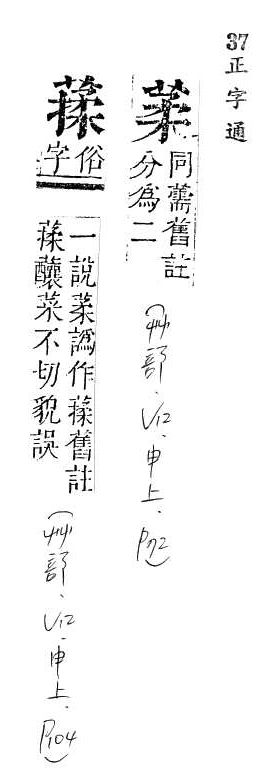 37正字通
葇
同薷舊註
分爲二
(艸部.V12.申上.P72)
俗
字
一說葇譌作舊註
釀菜不切貌誤
(艸部.V12.申上.P104)